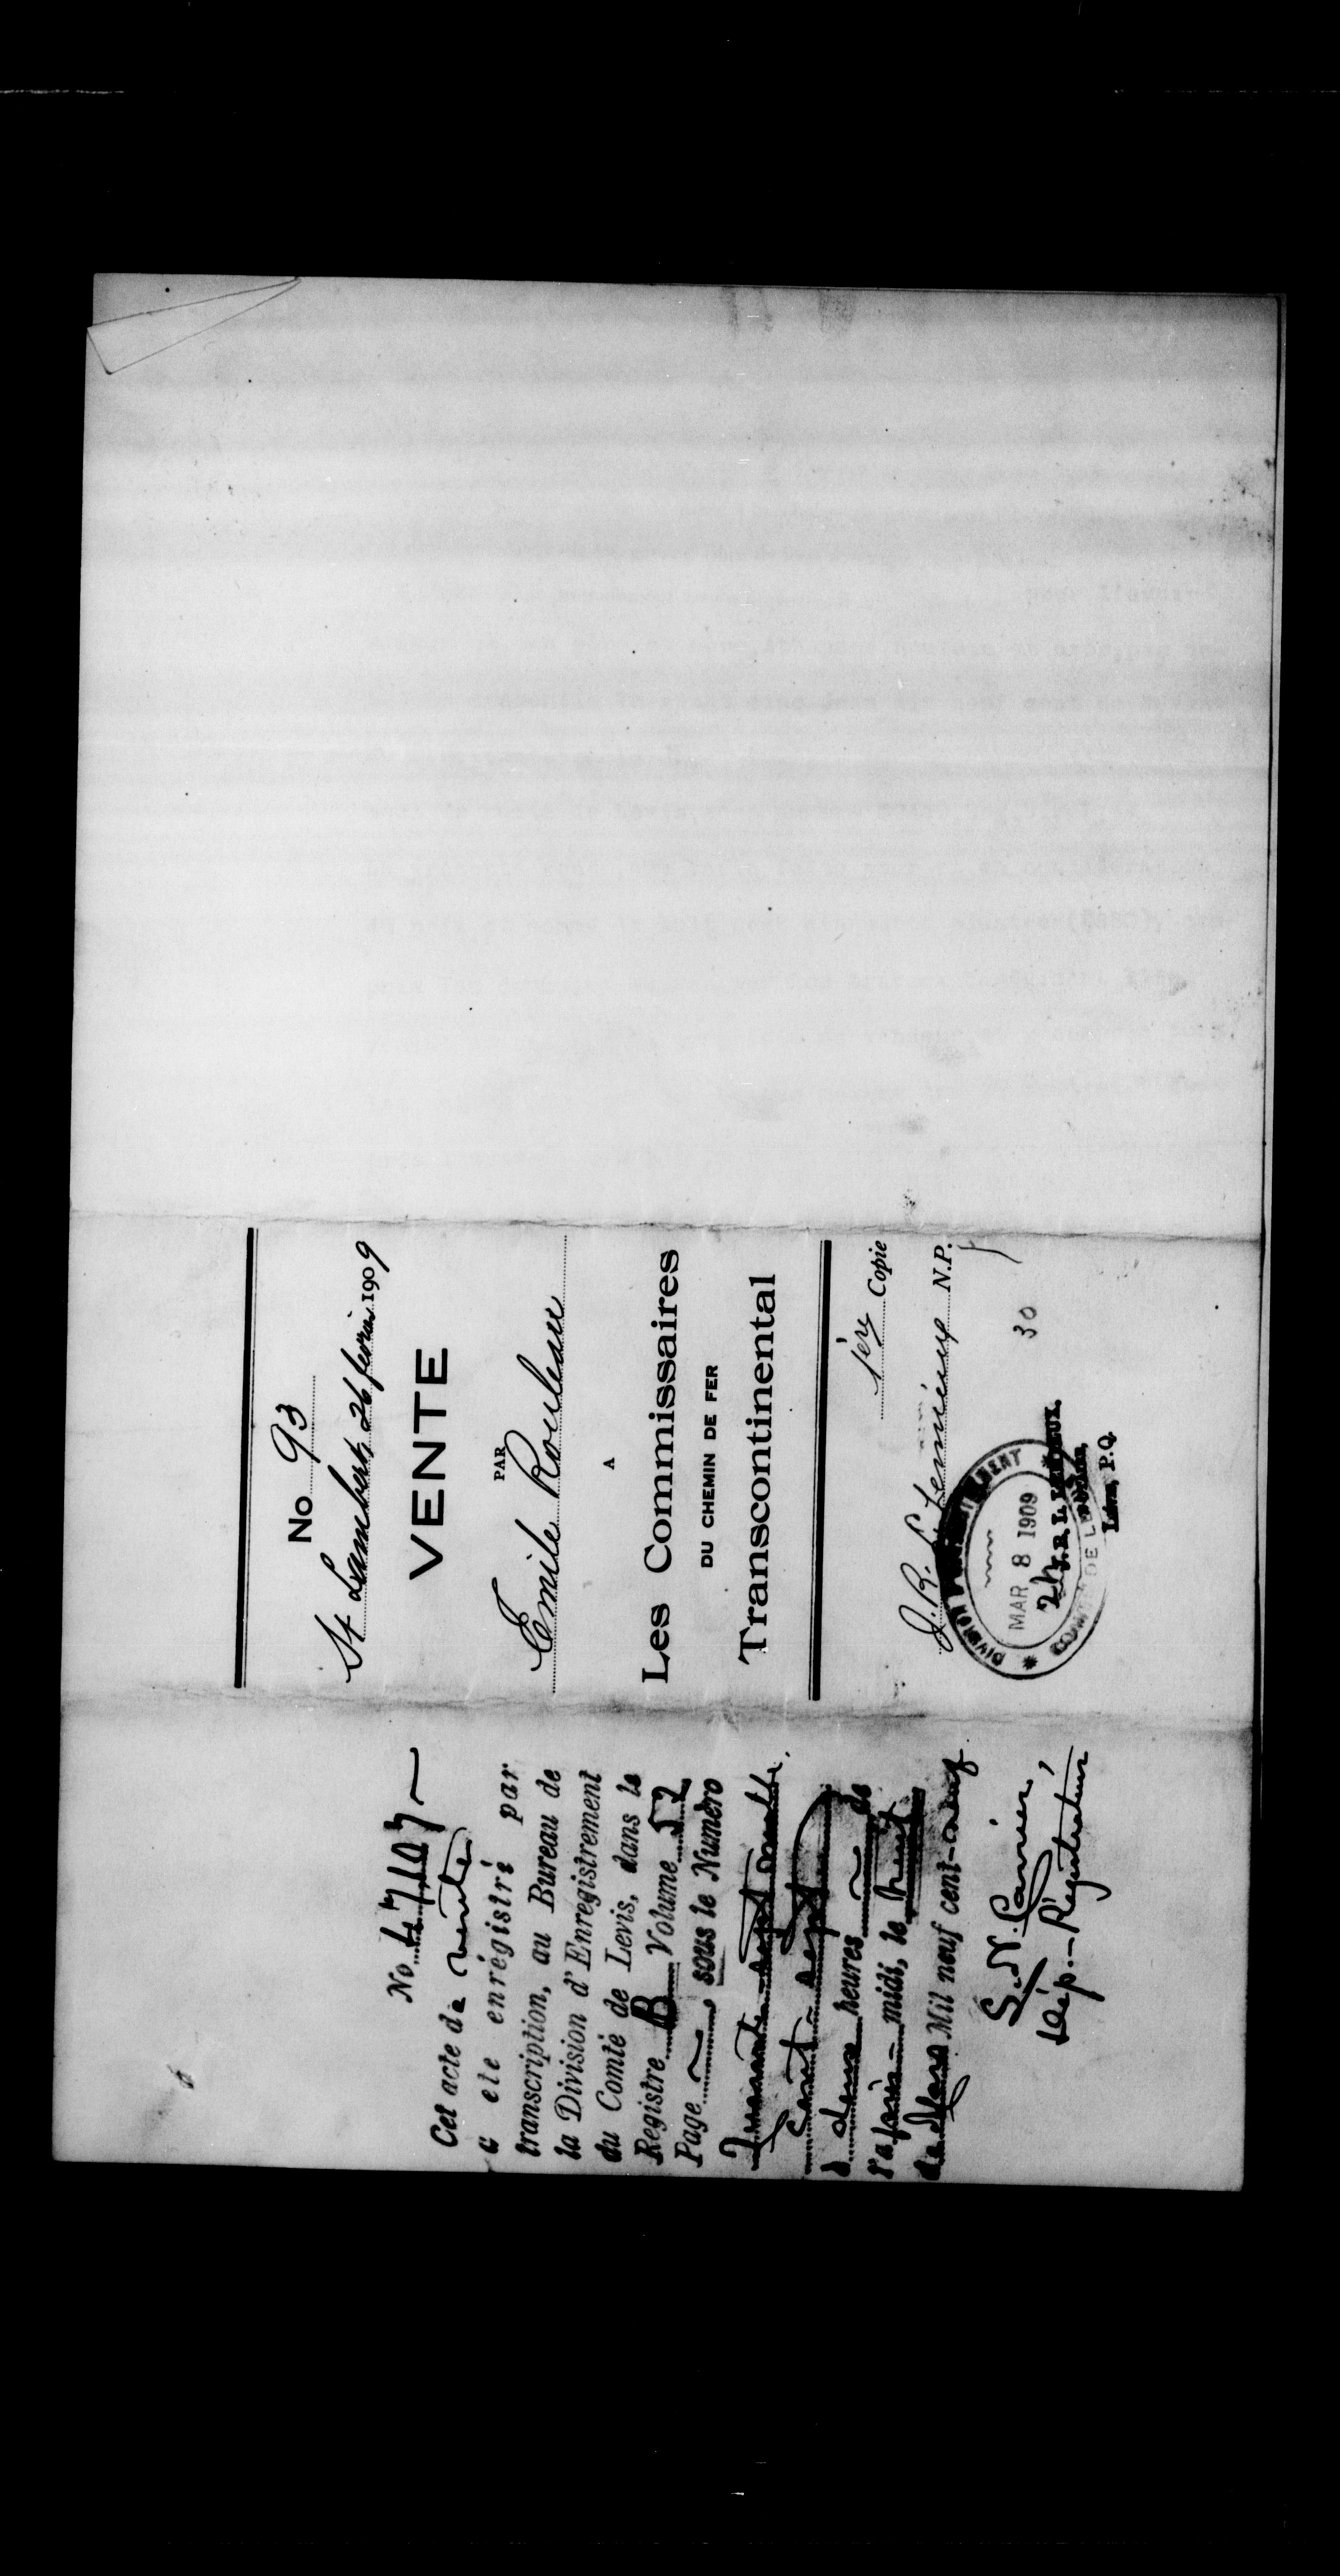 No 93
St Lambert, 26 fevrier 1909
VENTE
PAR
Emile Rouleau
A
Les Commissaires
DU CHEMIN DE FER
Transcontinental
1ère Copie
J. R. L. Lemieux N.P.
30
DIVISION D'ENREGISTREMENT
MAR 8 1909
2h
COMTÉ DE LEVIS
J. R. L. LEMIEUX,
Notaire,
Lévis, P.Q.
No 47107
Cet acte de vente
a ete enrégistré par
transcription, au Bureau de
la Division d'Enregistrement
du Comté de Levis, dans le
Registre B Volume 52
Page sous le Numéro
Quarante-sept mille
Cent-sept
à deux heures de
l'après-midi, le huit
de Mars Mil neuf cent-neuf
S. N. Carrier,
Dép.-Régistrateur